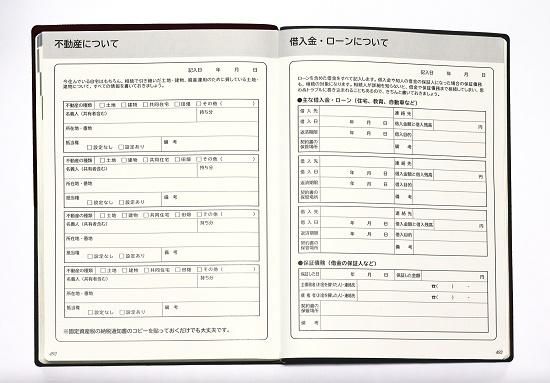 不動産について
記入日 年 月 日
今住んでいる自宅はもちろん、相続で引き継いだ土地・建物、資産運用のために貸している土地・
建物について、すべての情報を書いておきましょう。
不動産の種類 □土地 □建物 □共同住宅 □田畑 □その他( )
名義人(共有者含む) 持ち分
所在地・番地
抵当権 □設定なし □設定あり 備考
不動産の種類 □土地 □建物 □共同住宅 □田畑 □その他( )
名義人(共有者含む) 持ち分
所在地・番地
抵当権 □設定なし □設定あり 備考
不動産の種類 □土地 □建物 □共同住宅 □田畑 □その他( )
名義人(共有者含む) 持ち分
所在地・番地
抵当権 □設定なし □設定あり 備考
不動産の種類 □土地 □建物 □共同住宅 □田畑 □その他( )
名義人(共有者含む) 持ち分
所在地・番地
抵当権 □設定なし □設定あり 備考
※固定資産税の納税通知書のコピーを貼っておくだけでも大丈夫です。
借入金・ローンについて
記入日 年 月 日
ローンを含めた借金をすべて記入します。借入金や知人の借金の保証人になった場合の保証債務
も、相続の対象になります。相続人が詳細を知らないと、借金や保証債務まで相続してしまい、思
わぬトラブルに巻き込まれることもあるので、きちんと書いておきましょう。
●主な借入金・ローン(住宅、教育、自動車など)
借入先 連絡先
借入日 年 月 日 借入金額と借入残高 円
返済期限 年 月 日 借入目的
契約書の保管場所 備考
借入先 連絡先
借入日 年 月 日 借入金額と借入残高 円
返済期限 年 月 日 借入目的
契約書の保管場所 備考
借入先 連絡先
借入日 年 月 日 借入金額と借入残高 円
返済期限 年 月 日 借入目的
契約書の保管場所 備考
●保証債務(借金の保証人など)
保証した日 年 月 日 保証した金額 円
主債務者(お金を借りた人)・連絡先 ☎( ) -
債権者(お金を貸した人)・連絡先 ☎( ) -
契約書の保管場所
備考